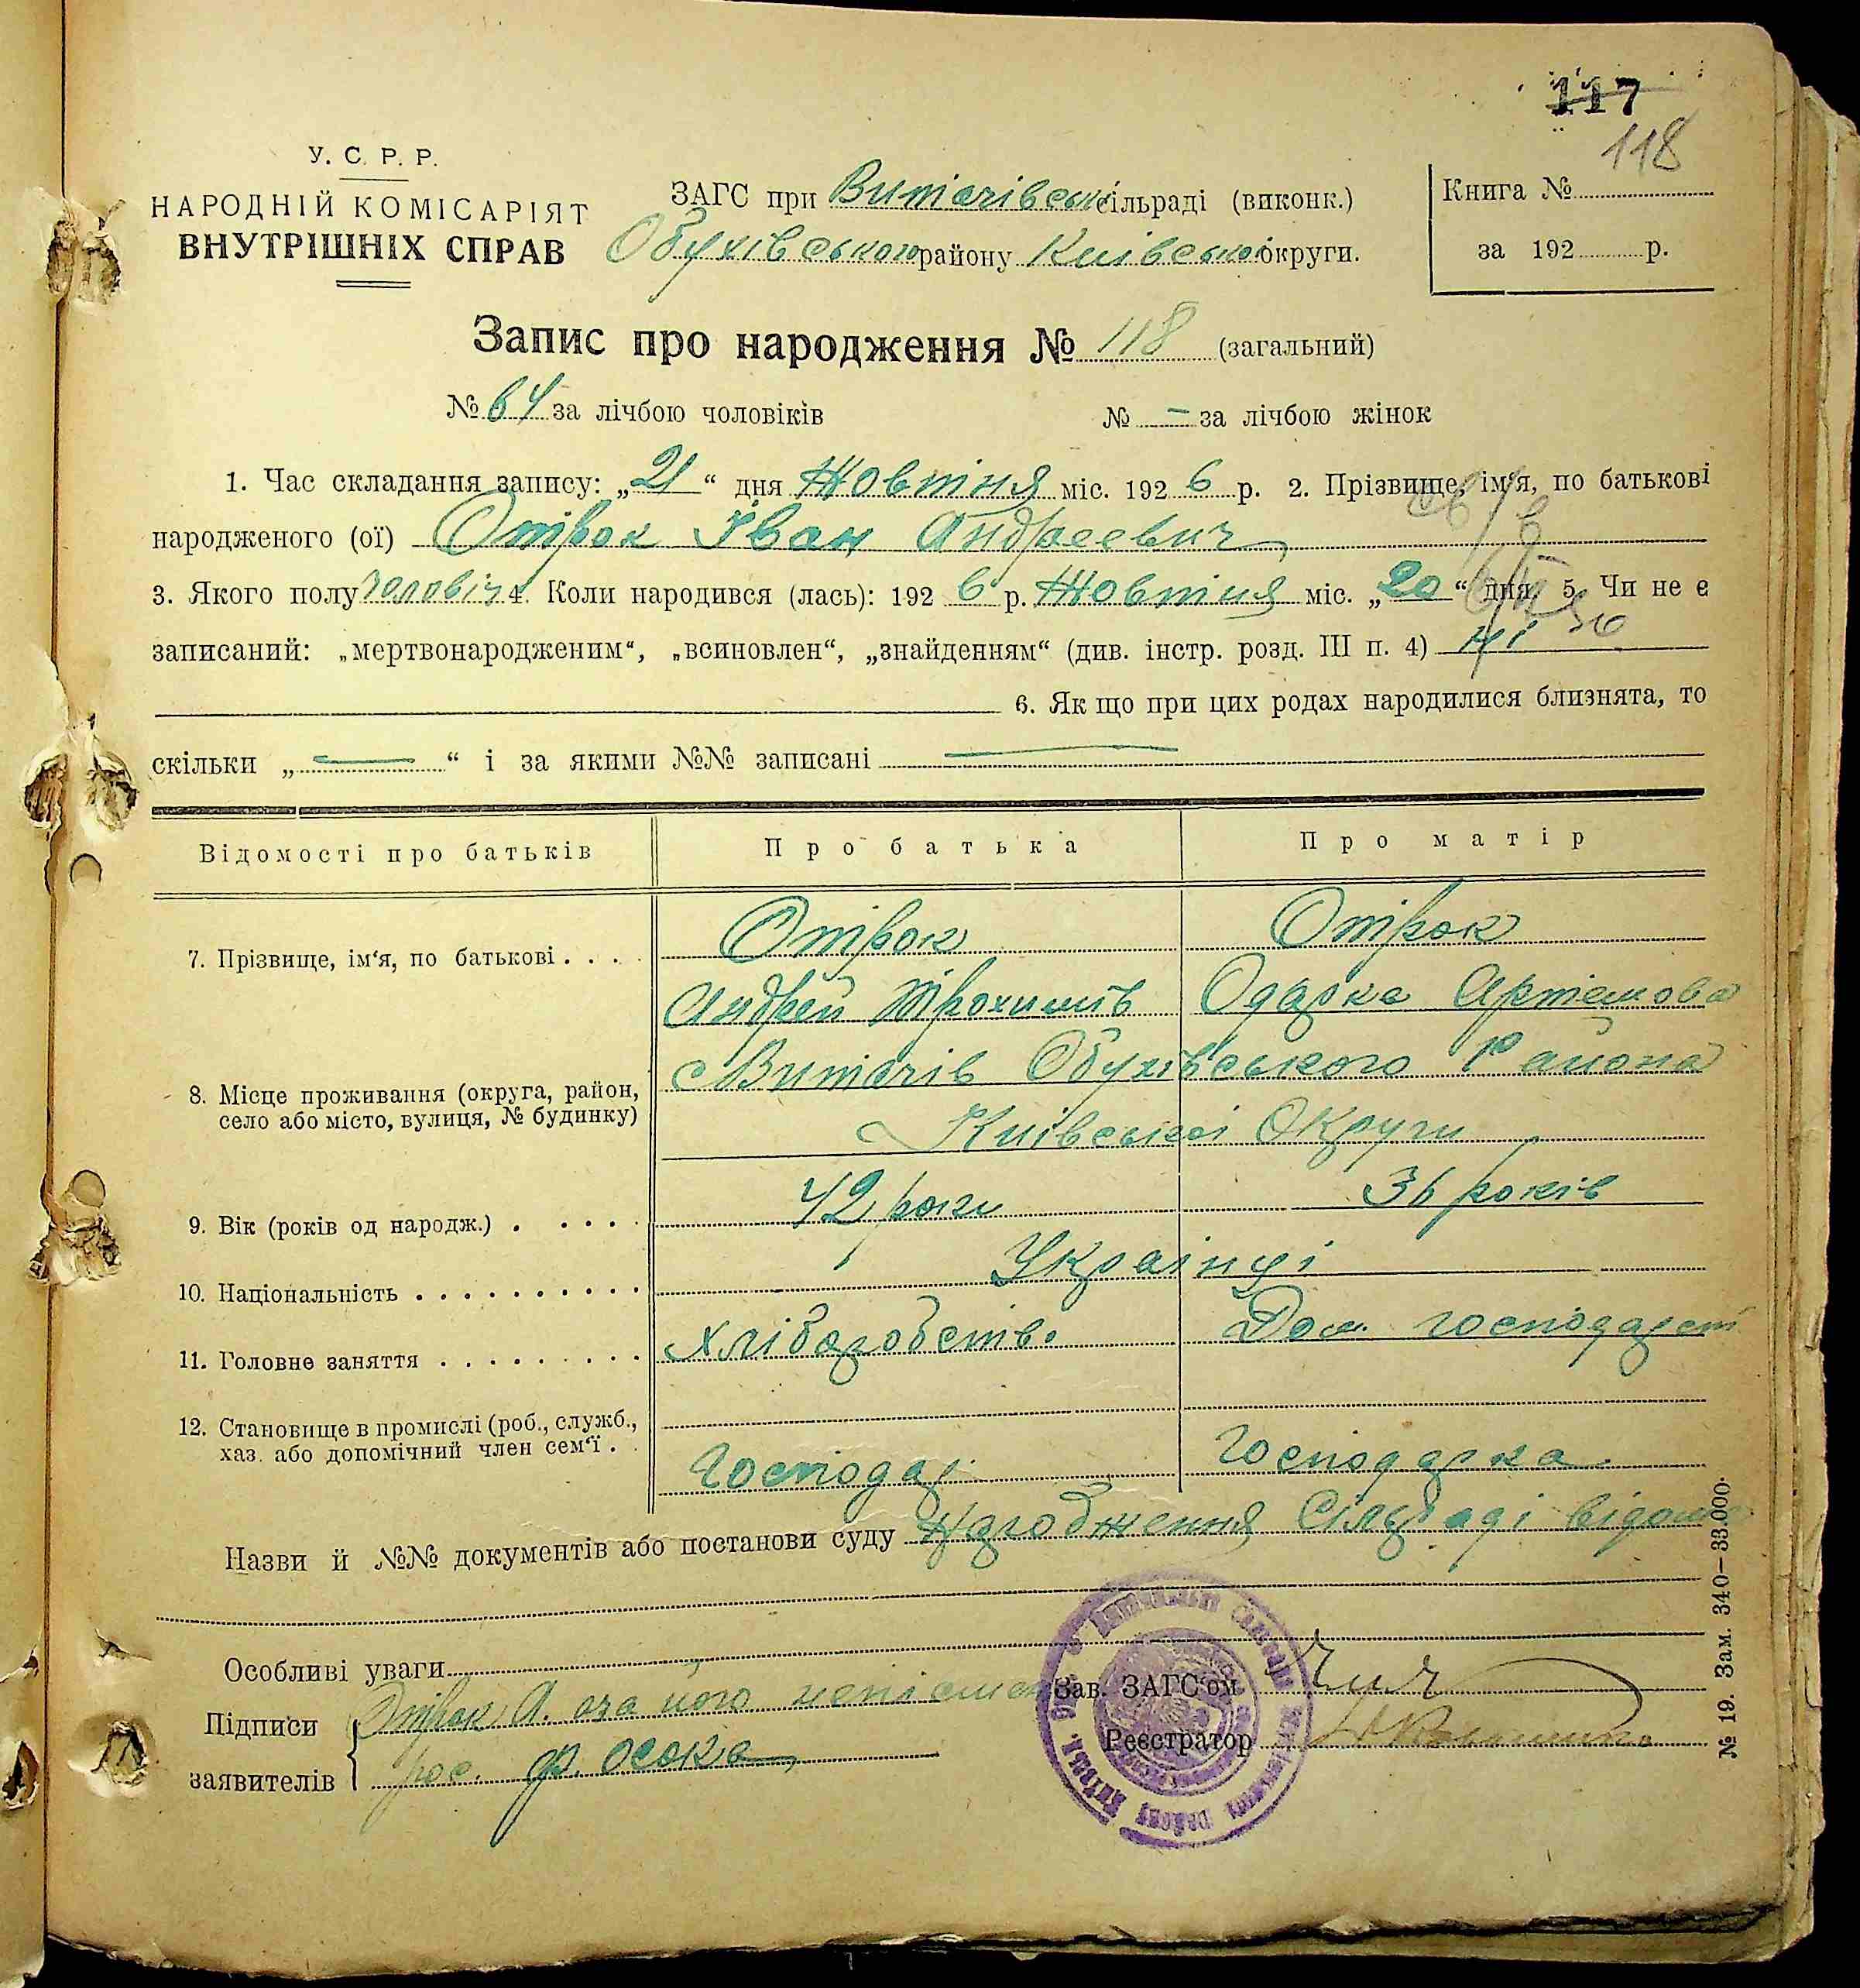 117
118
У. С. Р. Р.
НАРОДНІЙ КОМІСАРІЯТ
ВНУТРІШНІХ СПРАВ
ЗАГС при Витачівській сільраді (виконк.)
Обухівського району Київської округи.
Книга №
за 192 р.
Запис про народження № 118 (загальний)
№ 64 за лічбою чоловіків № – за лічбою жінок
1. Час складання запису: „21“ дня Жовтня міс. 1926 р. 2. Прізвище, ім'я, по батькові
народженого (ої) Отрок Іван Андреевич
3. Якого полу чоловіч 4. Коли народився (лась): 1926 р. Жовтня міс. „20“ дня 5. Чи не є
записаний: „мертвонародженим“, „всиновлен“, „знайденням“ (див. інстр. розд. III п. 4) ні
6. Як що при цих родах народилися близнята, то
скільки „—“ і за якими №№ записані —
Відомості про батьків Про батька Про матір
7. Прізвище, ім'я, по батькові . . . . Отрок Отрок
Андрей Трохимів Одарка Артемова
8. Місце проживання (округа, район, село або місто, вулиця, № будинку) с Витачів Обухівського Района
Київської Округи
9. Вік (років од народж.) . . . . . 42 роки 36 років
10. Національність . . . . . . . . . . Українці
11. Головне заняття . . . . . . . . . Хлібаробство Дом. господарст
12. Становище в промислі (роб., служб.,
хаз. або допомічний член сем'ї . . Господар Господарка
Назви й №№ документів або постанови суду Народження Сільраді відомо
Особливі уваги
Підписи заявителів Отрок А. а за його
рос. Ф. Осока
Зав. ЗАГС'ом
Реєстратор
№ 19. Зам. 340—33.000.